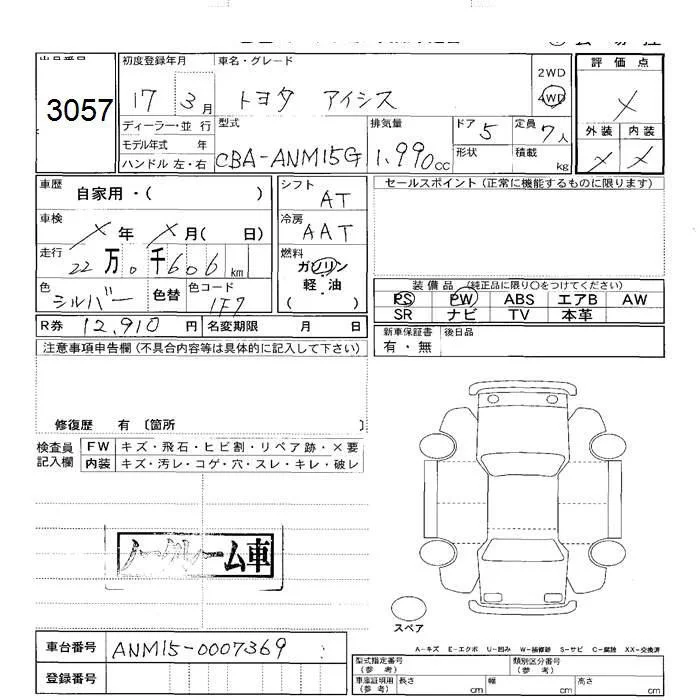 初度登録年月 車名・グレード 2WD 評価点
3057 17 3月 トヨタ アイシス 4WD ×
ディーラー・並行 型式 排気量 ドア 5 定員 7人 外装 内装
モデル年式 年 CBA-ANM15G 1,990cc 形状 積載 kg × ×
ハンドル 左・右
車歴 自家用・( ) シフト AT セールスポイント(正常に機能するものに限ります)
車検 × 年 × 月( 日) 冷房 AAT
走行 22万0千606km 燃料 ガソリン 軽・油 ( )
色 シルバー 色替 色コード 1F7
装備品 (純正品に限り○をつけてください)
PS PW ABS エアB AW
SR ナビ TV 本革
R券 12,910円 名変期限 月 日 新車保証書 有・無 後日品
注意事項申告欄(不具合内容等は具体的に記入して下さい)
修復歴 有 〔箇所 〕
検査員記入欄 FW キズ・飛石・ヒビ割・リペア跡・×要
内装 キズ・汚レ・コゲ・穴・スレ・キレ・破レ
ノークレーム車
スペア
A-キズ E-エクボ U-凹み W-補修跡 S-サビ C-腐蝕 XX-交換済
車台番号 ANM15-0007369
登録番号
型式指定番号(参考) 類別区分番号(参考)
車庫証明用(参考) 長さ cm 幅 cm 高さ cm